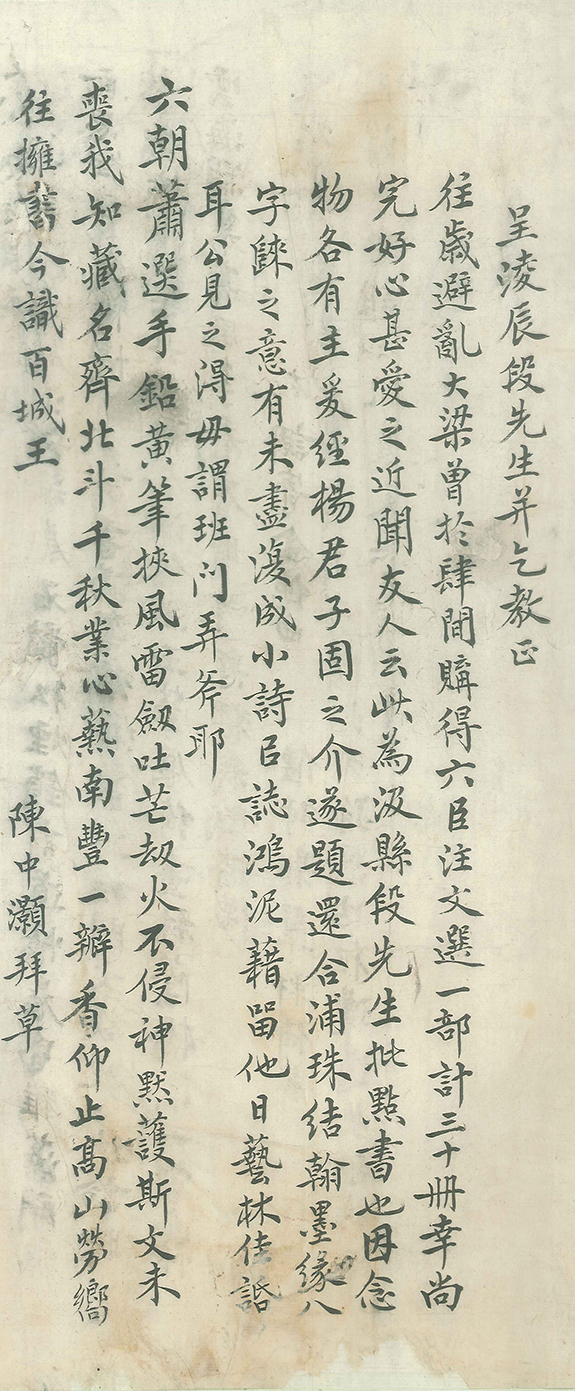 呈淩辰段先生并乞教正
往歲避亂大梁曾於肆間購得六臣注文選一部計三十冊幸尚
完好心甚愛之近聞友人云此為汲縣段先生批點書也因念
物各有主爰經楊君子固之介遂題還合浦珠結翰墨緣八
字歸之意有未盡復成小詩㠯誌鴻泥藉畱他日藝林佳話
耳公見之得毋謂班门弄斧耶
六朝蕭選手鉛黃筆挾風雷劒吐芒劫火不侵神默護斯文未
喪我知藏名齊北斗千秋業心爇南豐一瓣香仰止高山勞嚮
往擁書今識百城王
陳中灝拜草